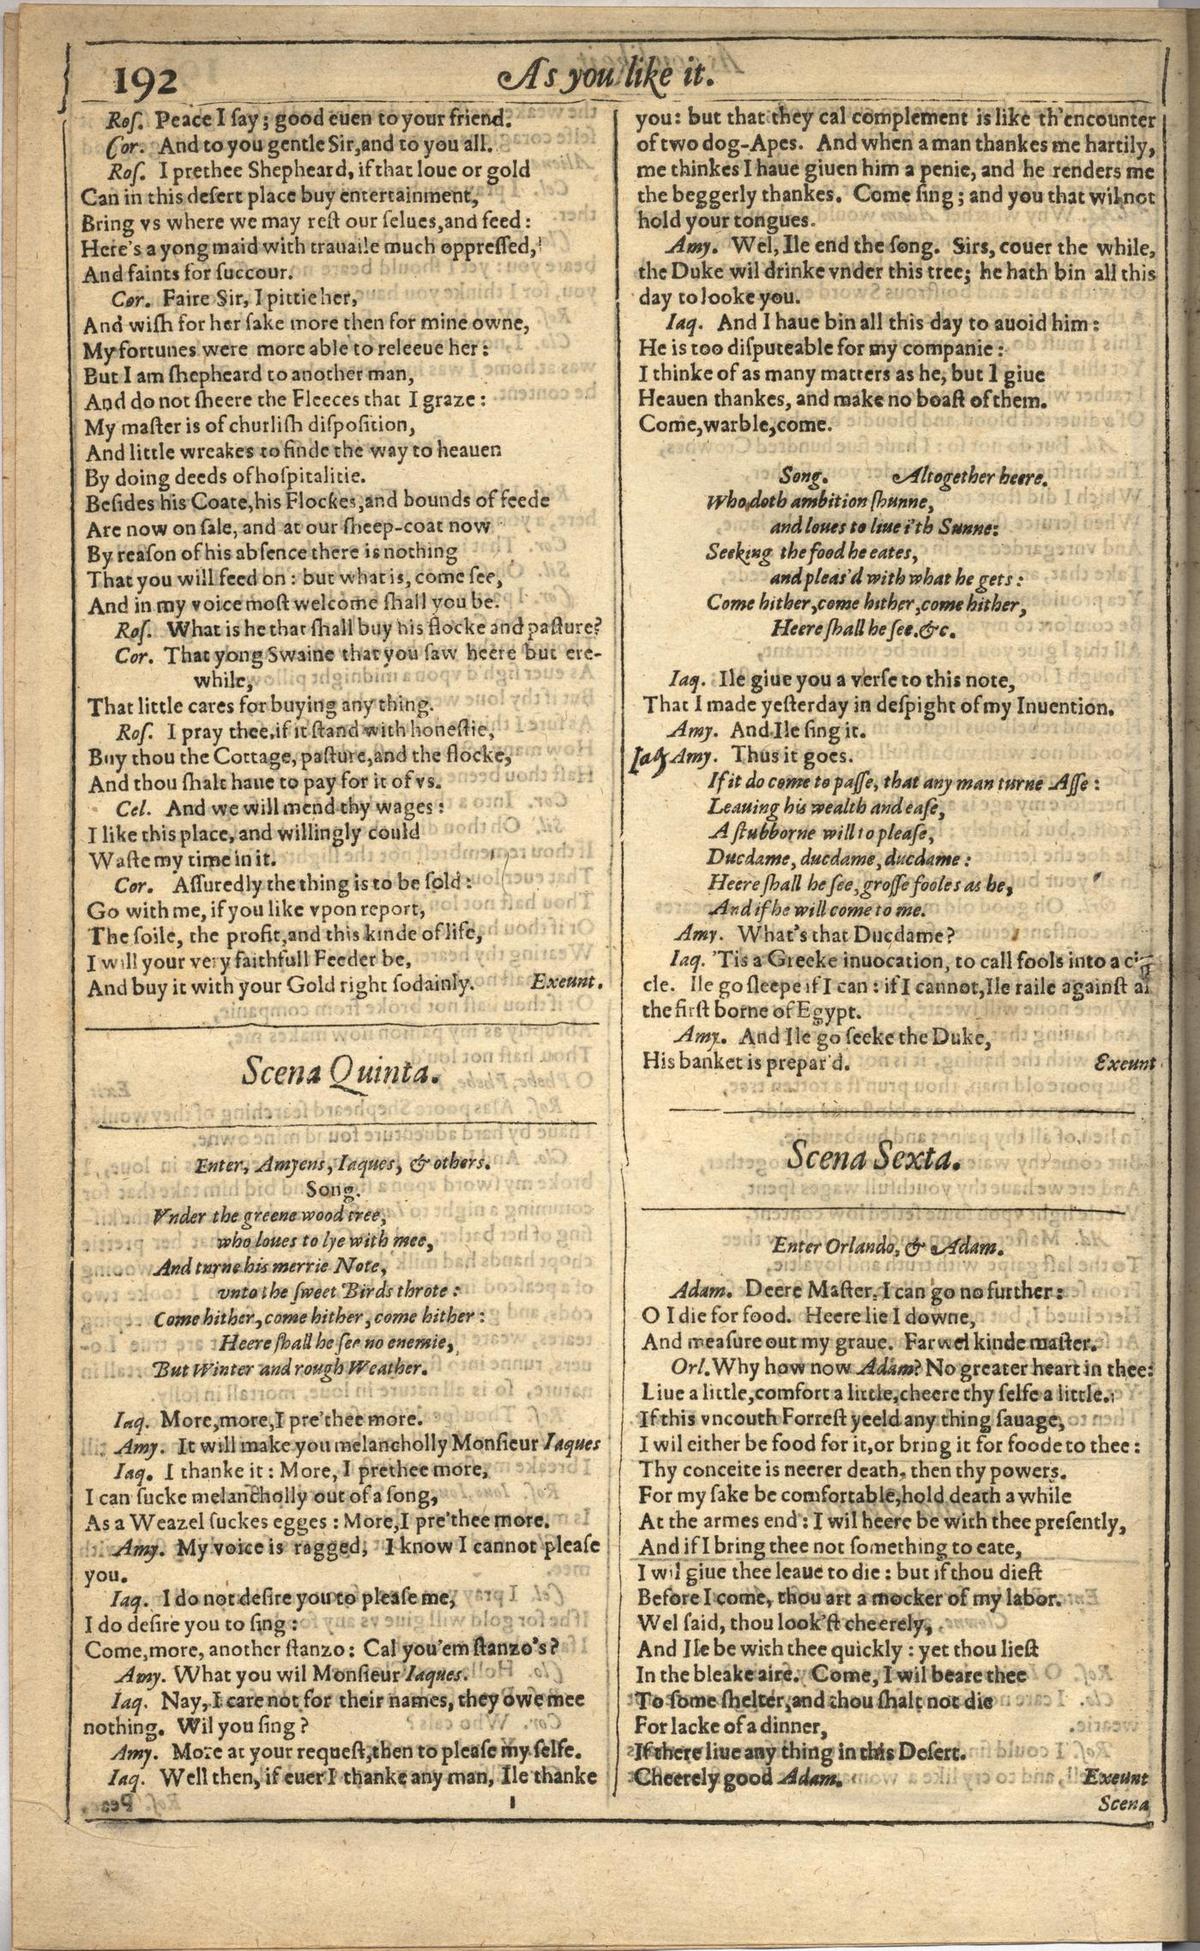 192
As you like it.
Roſ. Peace I ſay; good euen to your friend.
Cor. And to you gentle Sir, and to you all.
Roſ. I prethee Shepheard, if that loue or gold
Can in this deſert place buy entertainment,
Bring vs where we may reſt our ſelues, and feed:
Here's a yong maid with trauaile much oppreſſed,
And faints for ſuccour.
Cor. Faire Sir, I pittie her,
And wiſh for her ſake more then for mine owne,
My fortunes were more able to releeue her:
But I am ſhepheard to another man,
And do not ſheere the Fleeces that I graze:
My maſter is of churliſh diſpoſition,
And little wreakes to finde the way to heauen
By doing deeds of hoſpitalitie.
Beſides his Coate, his Flockes, and bounds of feede
Are now on ſale, and at our ſheep-coat now
By reaſon of his abſence there is nothing
That you will feed on: but what is, come ſee,
And in my voice moſt welcome ſhall you be.
Roſ. What is he that ſhall buy his flocke and paſture?
Cor. That yong Swaine that you ſaw heere but ere-
while,
That little cares for buying any thing.
Roſ. I pray thee, if it ſtand with honeſtie,
Buy thou the Cottage, paſture, and the flocke,
And thou ſhalt haue to pay for it of vs.
Cel. And we will mend thy wages:
I like this place, and willingly could
Waſte my time in it.
Cor. Aſſuredly the thing is to be ſold:
Go with me, if you like vpon report,
The ſoile, the profit, and this kinde of life,
I will your very faithfull Feeder be,
And buy it with your Gold right ſodainly. Exeunt.
Scena Quinta.
Enter, Amyens, Iaques, & others.
Song.
Vnder the greene wood tree,
who loues to lye with mee,
And turne his merrie Note,
vnto the ſweet Birds throte:
Come hither, come hither, come hither:
Heere ſhall he ſee no enemie,
But Winter and rough Weather.
Iaq. More, more, I pre'thee more.
Amy. It will make you melancholly Monſieur Iaques
Iaq. I thanke it: More, I prethee more,
I can ſucke melancholly out of a ſong,
As a Weazel ſuckes egges: More, I pre'thee more.
Amy. My voice is ragged, I know I cannot pleaſe
you.
Iaq. I do not deſire you to pleaſe me,
I do deſire you to ſing:
Come, more, another ſtanzo: Cal you'em ſtanzo's?
Amy. What you wil Monſieur Iaques.
Iaq. Nay, I care not for their names, they owe mee
nothing. Wil you ſing?
Amy. More at your requeſt, then to pleaſe my ſelfe.
Iaq. Well then, if euer I thanke any man, Ile thanke
you: but that they cal complement is like th'encounter
of two dog-Apes. And when a man thankes me hartily,
me thinkes I haue giuen him a penie, and he renders me
the beggerly thankes. Come ſing; and you that wil not
hold your tongues.
Amy. Wel, Ile end the ſong. Sirs, couer the while,
the Duke wil drinke vnder this tree; he hath bin all this
day to looke you.
Iaq. And I haue bin all this day to auoid him:
He is too diſputeable for my companie:
I thinke of as many matters as he, but I giue
Heauen thankes, and make no boaſt of them.
Come, warble, come.
Song. Altogether heere.
Who doth ambition ſhunne,
and loues to liue i'th Sunne:
Seeking the food he eates,
and pleas'd with what he gets:
Come hither, come hither, come hither,
Heere ſhall he ſee. &c.
Iaq. Ile giue you a verſe to this note,
That I made yeſterday in deſpight of my Inuention.
Amy. And Ile ſing it.
Iaq Amy. Thus it goes.
If it do come to paſſe, that any man turne Aſſe:
Leauing his wealth and eaſe,
A ſtubborne will to pleaſe,
Ducdame, ducdame, ducdame:
Heere ſhall he ſee, groſſe fooles as he,
And if he will come to me.
Amy. What's that Ducdame?
Iaq. 'Tis a Greeke inuocation, to call fools into a cir-
cle. Ile go ſleepe if I can: if I cannot, Ile raile againſt al
the firſt borne of Egypt.
Amy. And Ile go ſeeke the Duke,
His banket is prepar'd. Exeunt
Scena Sexta.
Enter Orlando, & Adam.
Adam. Deere Maſter, I can go no further:
O I die for food. Heere lie I downe,
And meaſure out my graue. Farwel kinde maſter.
Orl. Why how now Adam? No greater heart in thee:
Liue a little, comfort a little, cheere thy ſelfe a little.
If this vncouth Forreſt yeeld any thing ſauage,
I wil either be food for it, or bring it for foode to thee:
Thy conceite is neerer death, then thy powers.
For my ſake be comfortable, hold death a while
At the armes end: I wil heere be with thee preſently,
And if I bring thee not ſomething to eate,
I wil giue thee leaue to die: but if thou dieſt
Before I come, thou art a mocker of my labor.
Wel ſaid, thou look'ſt cheerely,
And Ile be with thee quickly: yet thou lieſt
In the bleake aire. Come, I wil beare thee
To ſome ſhelter, and thou ſhalt not die
For lacke of a dinner,
If there liue any thing in this Deſert.
Cheerely good Adam. Exeunt
Scena